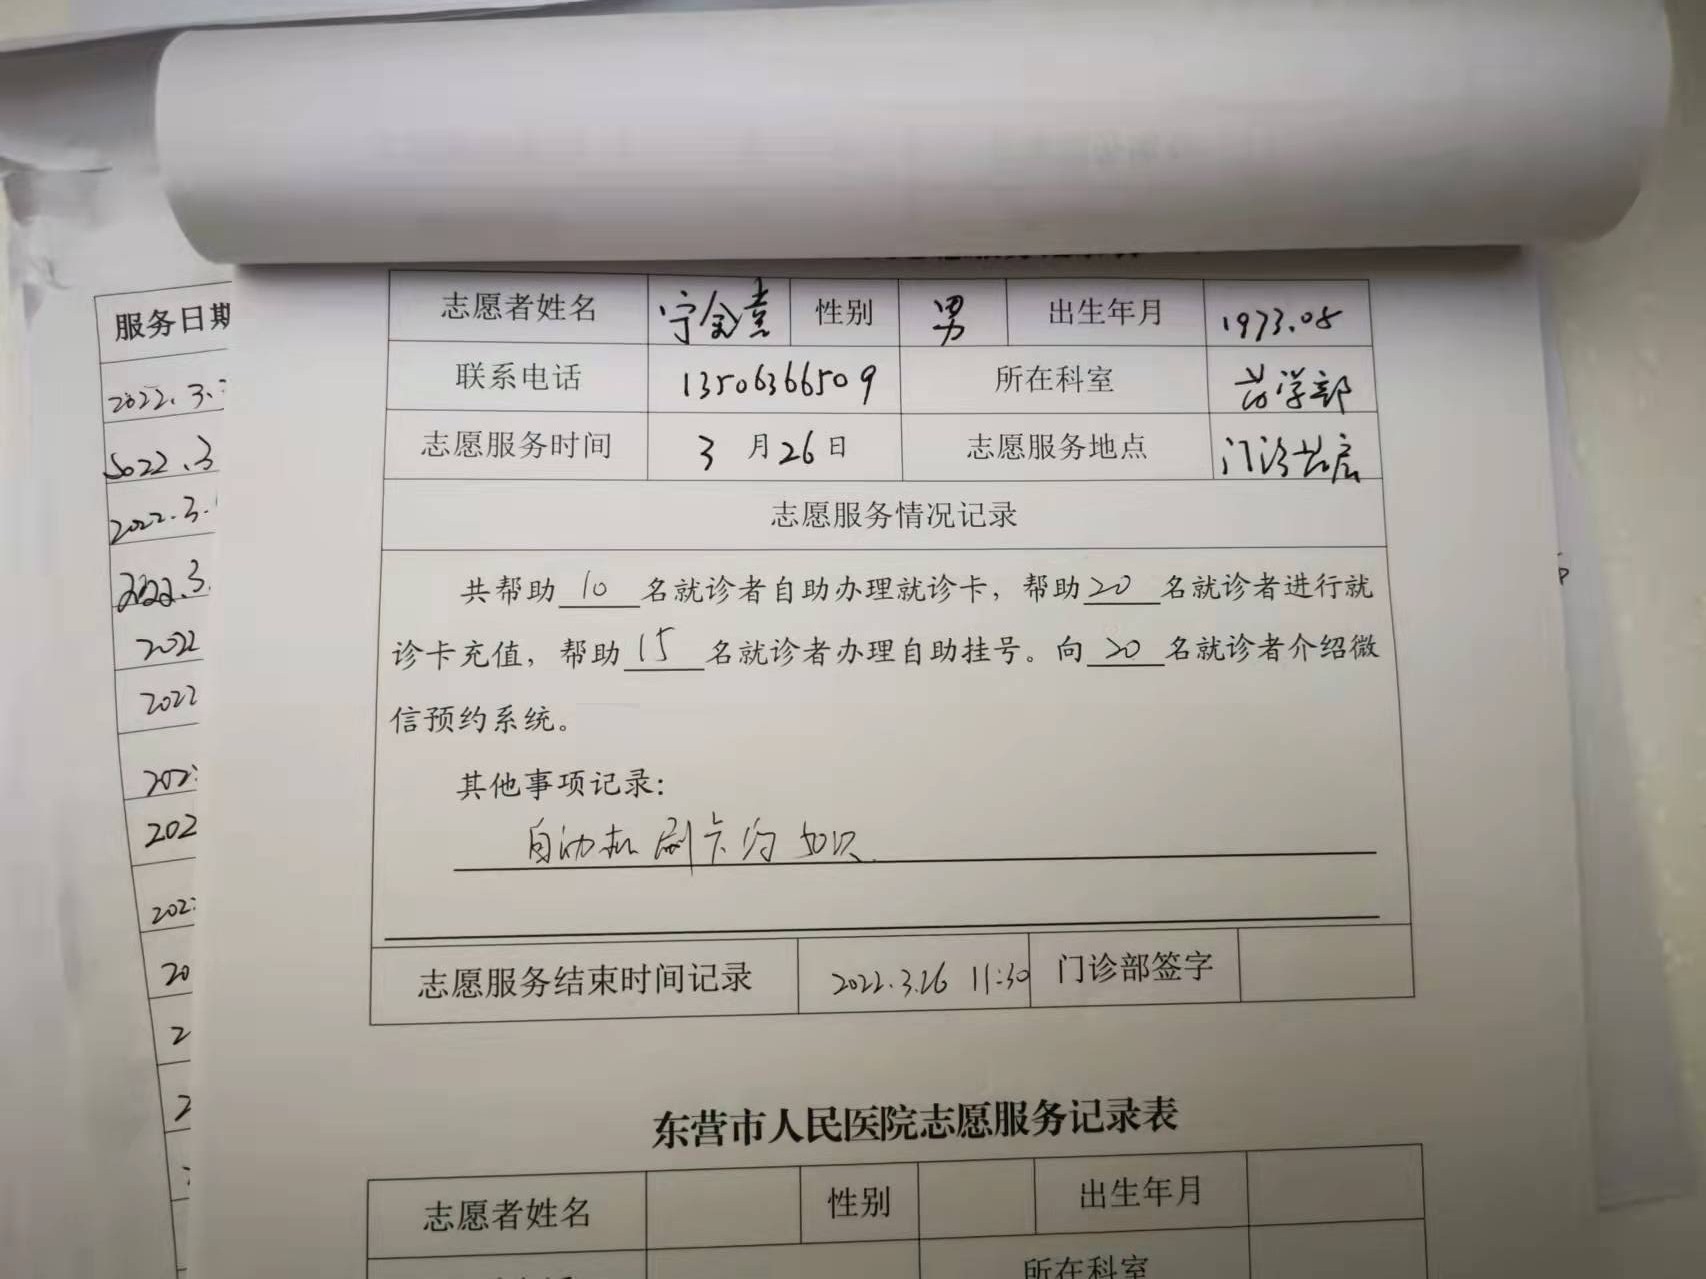 服务日期
2022.3.
2022.3
2022.3.
2022.3.
2022
2022
202
202
202
20
2
2
志愿者姓名 宁金熹 性别 男 出生年月 1973.08
联系电话 13506366509 所在科室 药学部
志愿服务时间 3月26日 志愿服务地点 门诊药房
志愿服务情况记录
共帮助 10 名就诊者自助办理就诊卡，帮助 20 名就诊者进行就
诊卡充值，帮助 15 名就诊者办理自助挂号。向 20 名就诊者介绍微
信预约系统。
其他事项记录：
自动机刷卡的知识
志愿服务结束时间记录 2022.3.26 11:30 门诊部签字
东营市人民医院志愿服务记录表
志愿者姓名 性别 出生年月
所在科室